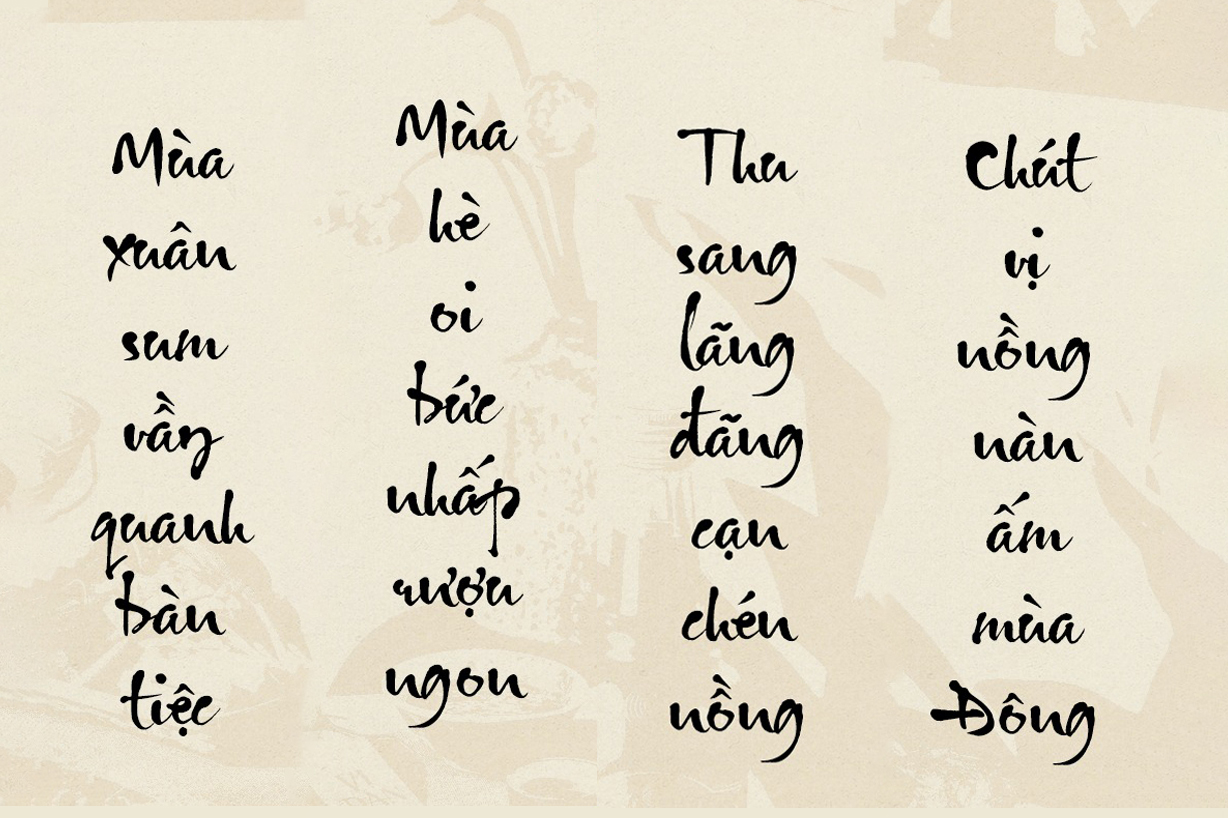 Mùa
xuân
sum
vầy
quanh
bàn
tiệc
Mùa
hè
oi
bức
nhấp
rượu
ngon
Thu
sang
lãng
đãng
cạn
chén
nồng
Chút
vị
nồng
nàn
ấm
mùa
Đông